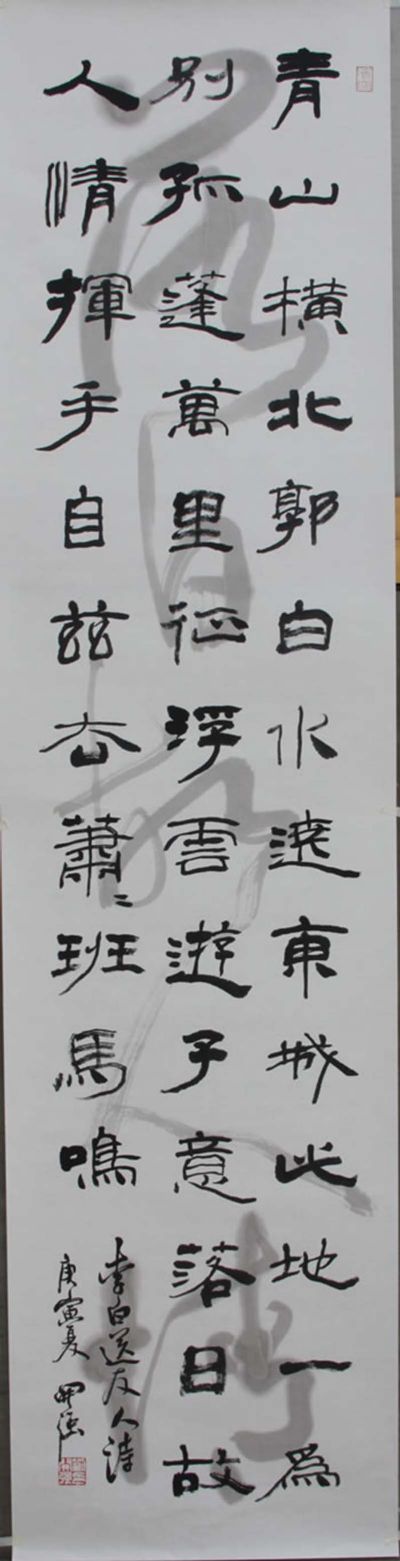 青山橫北郭白水遶東城此地一為
別孤蓬萬里征浮雲遊子意落日故
人情揮手自茲去蕭〻班馬鳴
李白送友人詩
庚寅夏
落日故人情